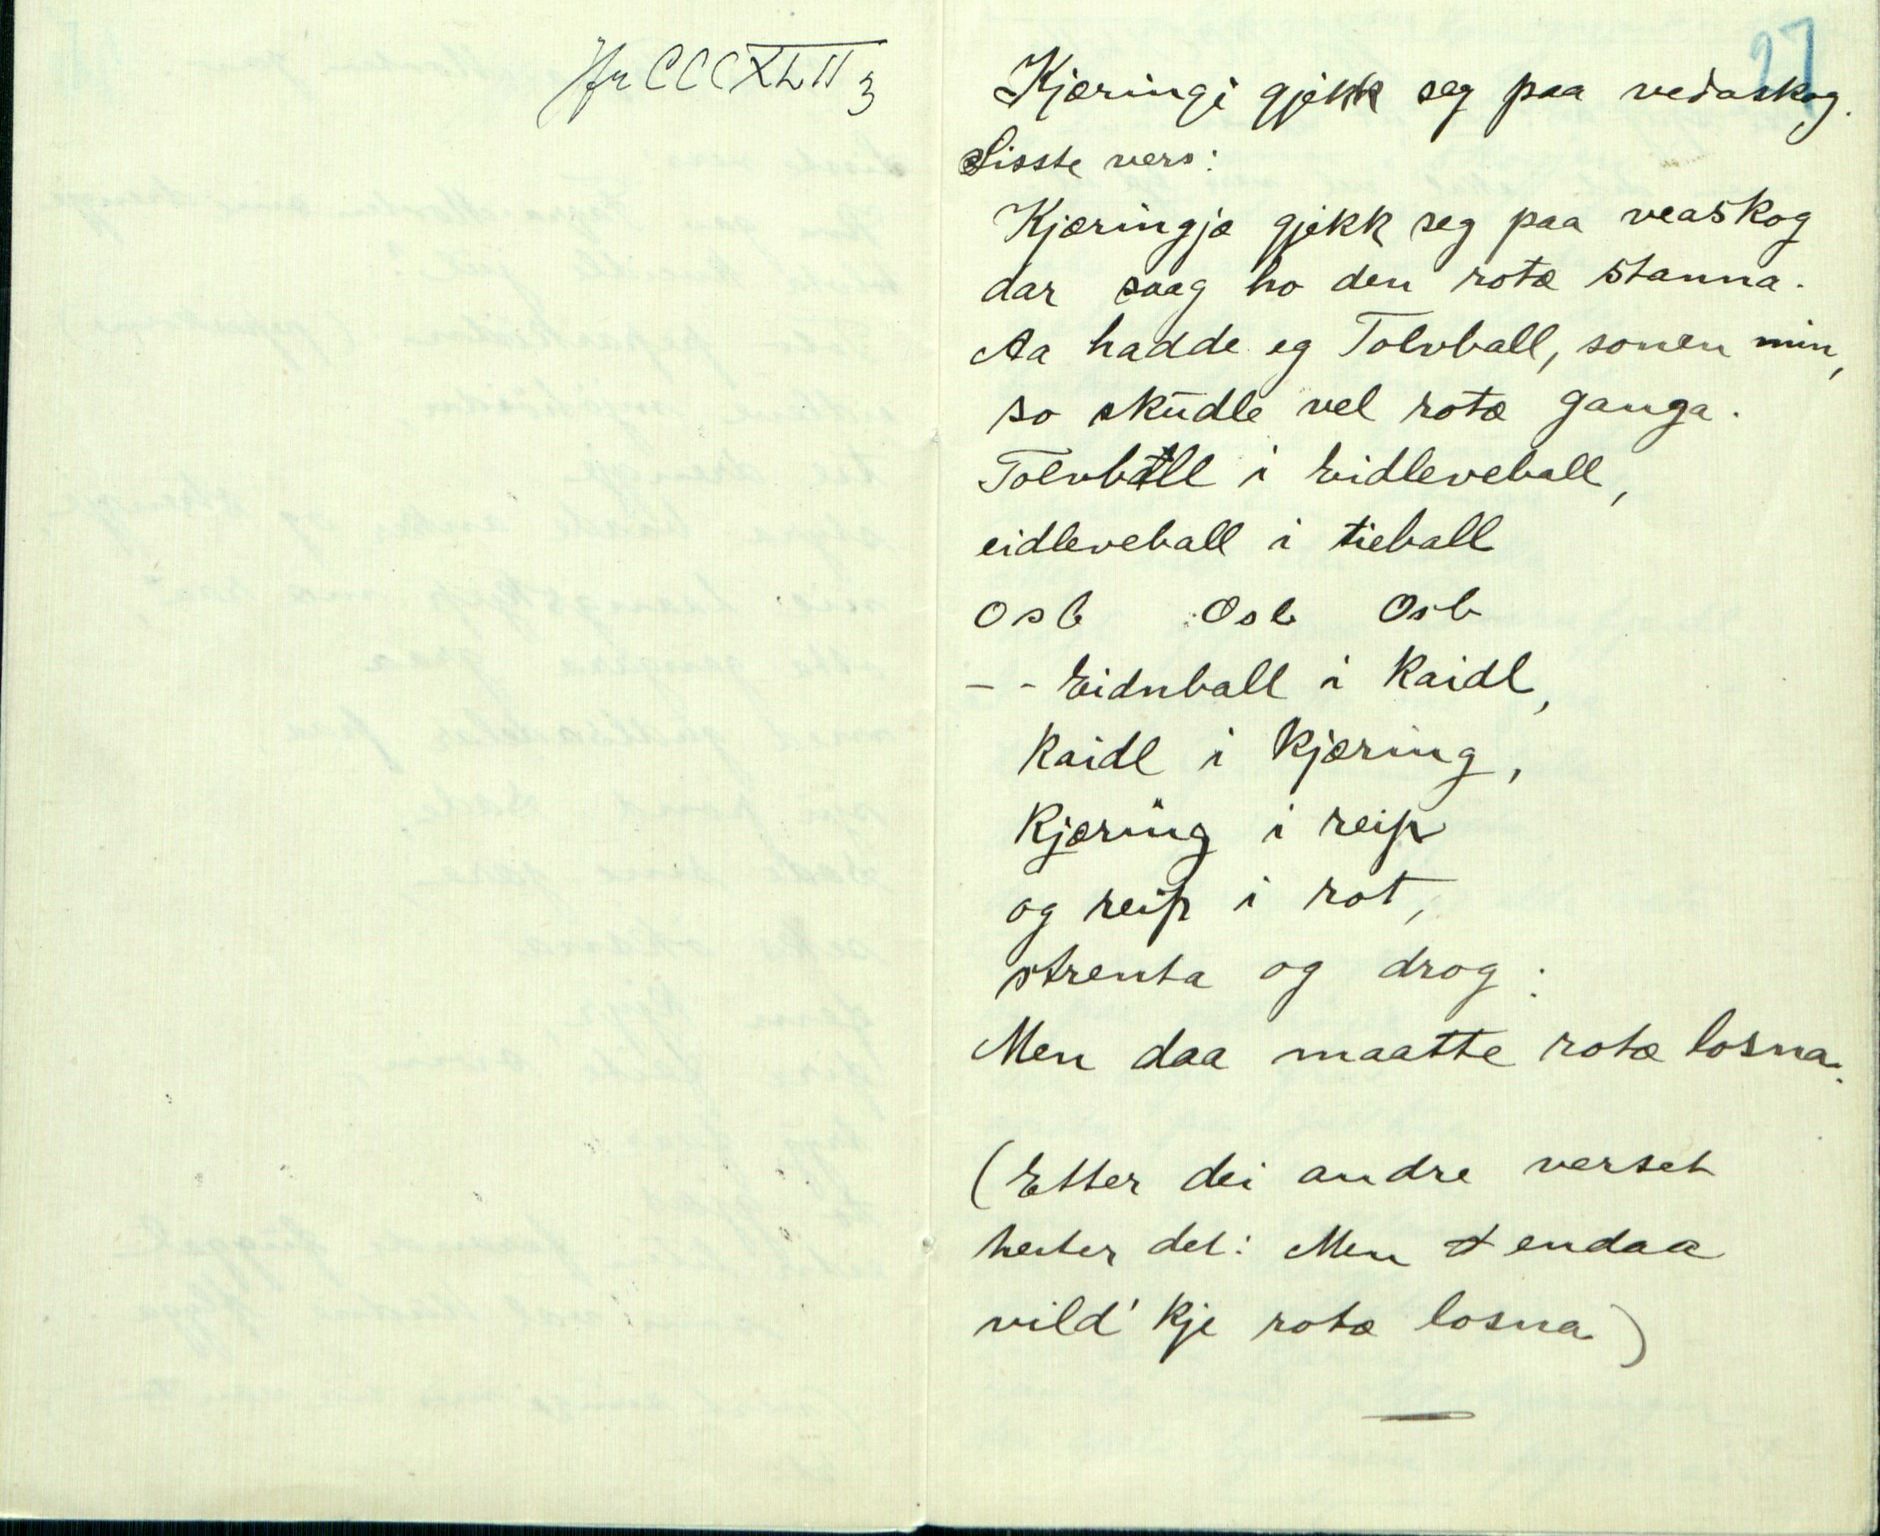 Jfr CCCXLII 3
27
Kjæringi gjekk seg paa vedaskog.
Sisste vers:
Kjæringjæ gjekk seg paa veaskog
dar saag ho den rotæ stanna.
Aa hadde eg Tolvball, sonen min,
so skudle vel rotæ ganga.
Tolvball i Eidleveball,
eidleveball i tieball
osb osb osb
– - Eidnball i Kaidl,
Kaidl i Kjæring,
Kjæring i reip
og reip i rot,
strenta og drog:
Men daa maatte rotæ losna.
(Etter dei andre verset
heiter det: Men endaa
vild' kje rotæ losna)